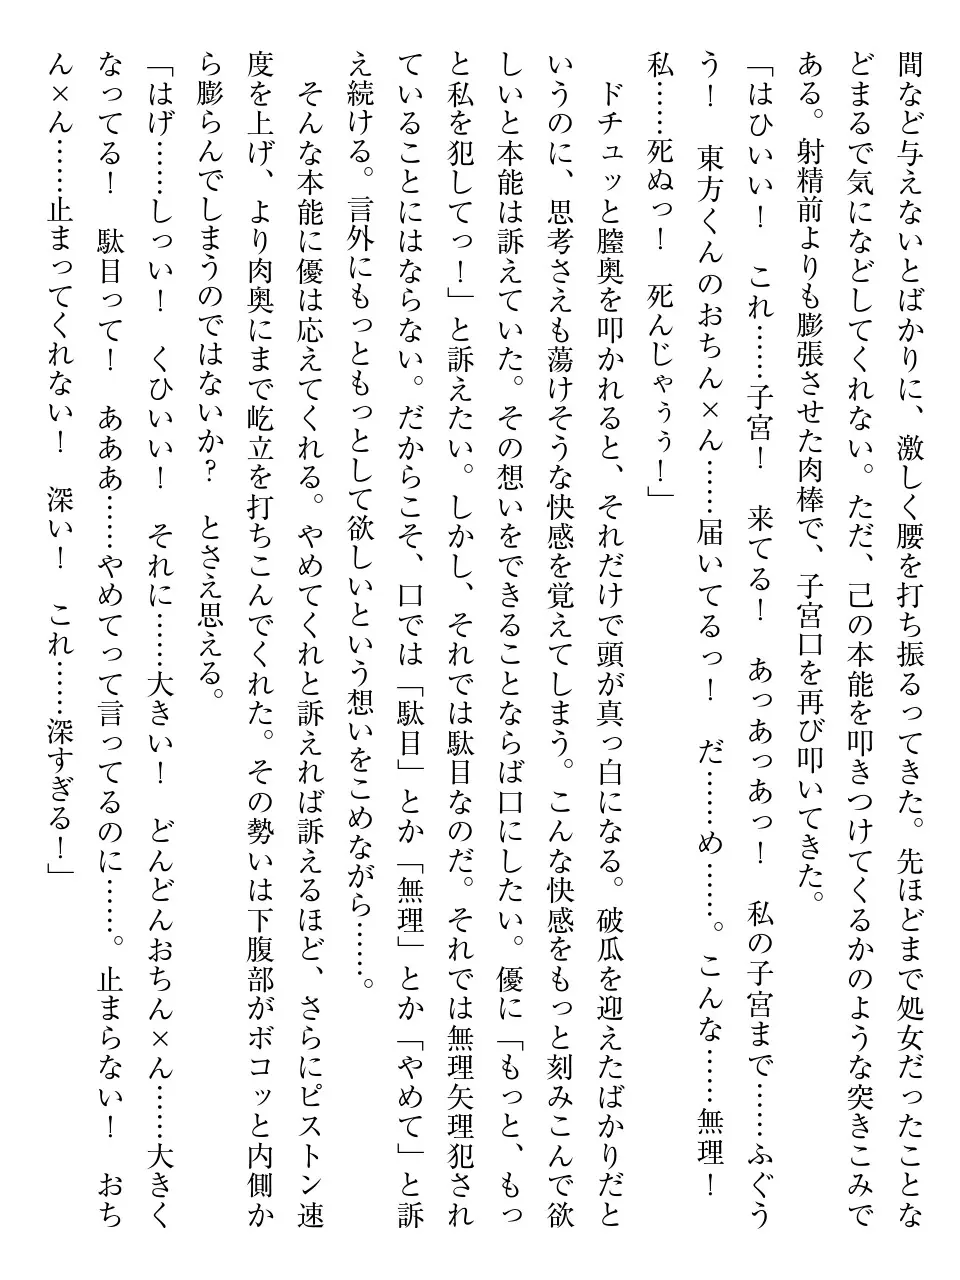 間など与えないとばかりに、激しく腰を打ち振るってきた。先ほどまで処女だったことな
どまるで気になどしてくれない。ただ、己の本能を叩きつけてくるかのような突きこみで
ある。射精前よりも膨張させた肉棒で、子宮口を再び叩いてきた。
「はひいい！　これ……子宮！　来てる！　あっあっあっ！　私の子宮まで……ふぐう
う！　東方くんのおちん×ん……届いてるっ！　だ……め……。こんな……無理！
私……死ぬっ！　死んじゃぅぅ！」
　ドチュッと膣奥を叩かれると、それだけで頭が真っ白になる。破瓜を迎えたばかりだと
いうのに、思考さえも蕩けそうな快感を覚えてしまう。こんな快感をもっと刻みこんで欲
しいと本能は訴えていた。その想いをできることならば口にしたい。優に「もっと、もっ
と私を犯してっ！」と訴えたい。しかし、それでは駄目なのだ。それでは無理矢理犯され
ていることにはならない。だからこそ、口では「駄目」とか「無理」とか「やめて」と訴
え続ける。言外にもっともっとして欲しいという想いをこめながら……。
　そんな本能に優は応えてくれる。やめてくれと訴えれば訴えるほど、さらにピストン速
度を上げ、より肉奥にまで屹立を打ちこんでくれた。その勢いは下腹部がボコッと内側か
ら膨らんでしまうのではないか？　とさえ思える。
「はげ……しっい！　くひいい！　それに……大きい！　どんどんおちん×ん……大きく
なってる！　駄目って！　あああ……やめてって言ってるのに……。止まらない！　おち
ん×ん……止まってくれない！　深い！　これ……深すぎる！」